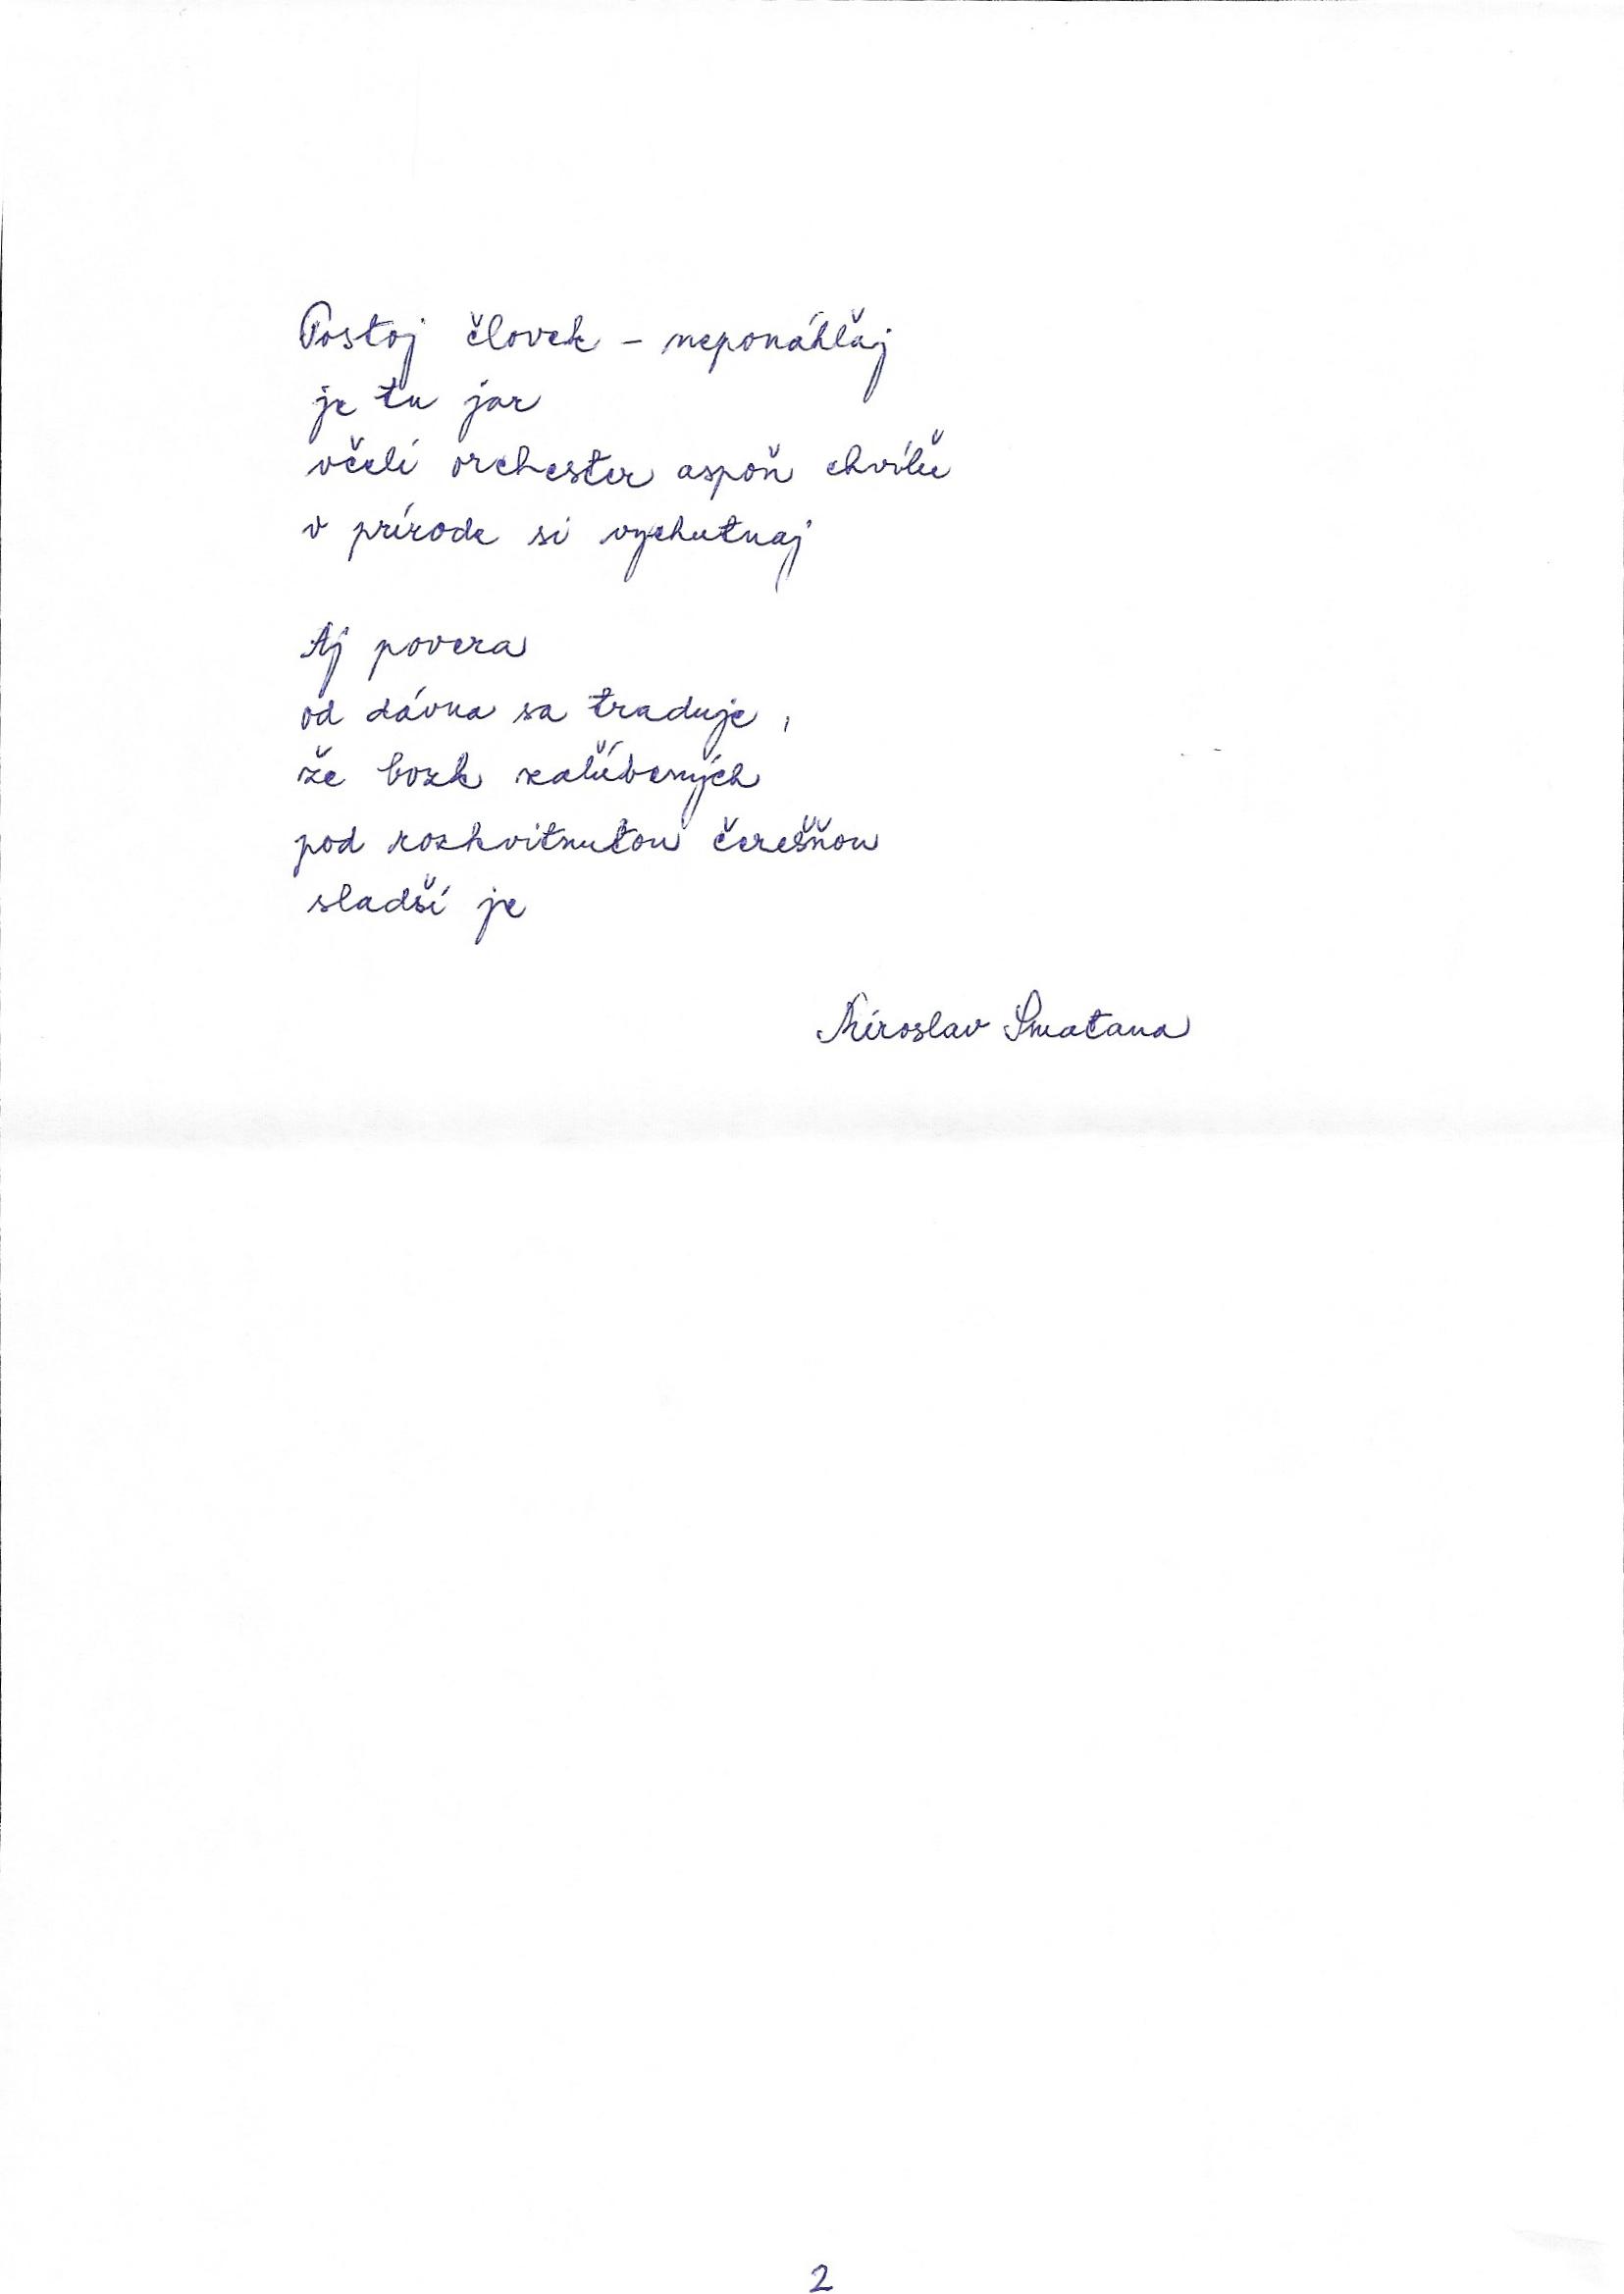 Postoj človek – neponáhľaj
je tu jar
včelí orchester aspoň chvíľu
v prírode si vychutnaj
Aj povera
od dávna sa traduje,
že bozk zaľúbených
pod rozkvitnutou čerešňou
sladší je
Miroslav Smatana
2